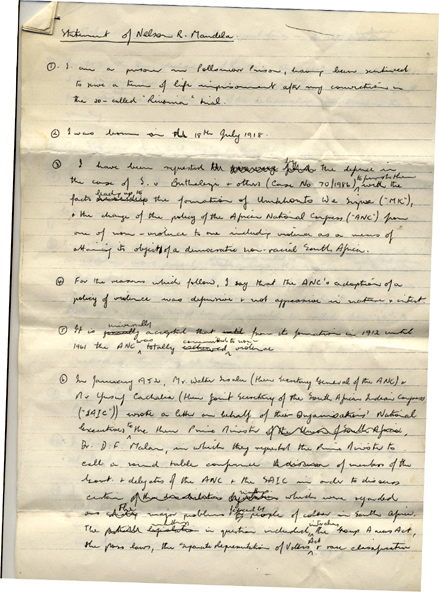 Statement of Nelson R. Mandela
① I am a prisoner in Pollsmoor Prison, having been sentenced
to serve a term of life imprisonment after my conviction in
the so-called "Rivonia" trial.
② I was born on the 18th July 1918.
③ I have been requested by the defence in
the case of S. v and others (Case No 70/1986), to furnish them with the
facts leading up to the formation of Umkhonto We Sizwe ("MK"),
& the change of the policy of the African National Congress ("ANC") from
one of non-violence to one including violence as a means of
attaining its object of a democratic non-racial South Africa.
④ For the reasons which follow, I say that the ANC's adoption of a
policy of violence was defensive & not aggressive in nature & intent.
⑤ It is universally accepted that from its formation in 1912 until
1961 the ANC was totally committed to non-violence
⑥ In January 1952, Mr. Walter Sisulu (then Secretary General of the ANC) &
Mr Yusuf Cachalia (then Joint Secretary of the South African Indian Congress
("SAIC")) wrote a letter on behalf of their Organisations' National
Executives to the then Prime Minister of the Union of South Africa,
Dr. D.F. Malan, in which they requested the Prime Minister to
call a round table conference of members of the
Govt. & delegates of the ANC & the SAIC in order to discuss
certain which were regarded
as major problems people of colour in South Africa.
The in question included, the Group Areas Act,
the pass laws, the separate representation of Voters Act & race classification